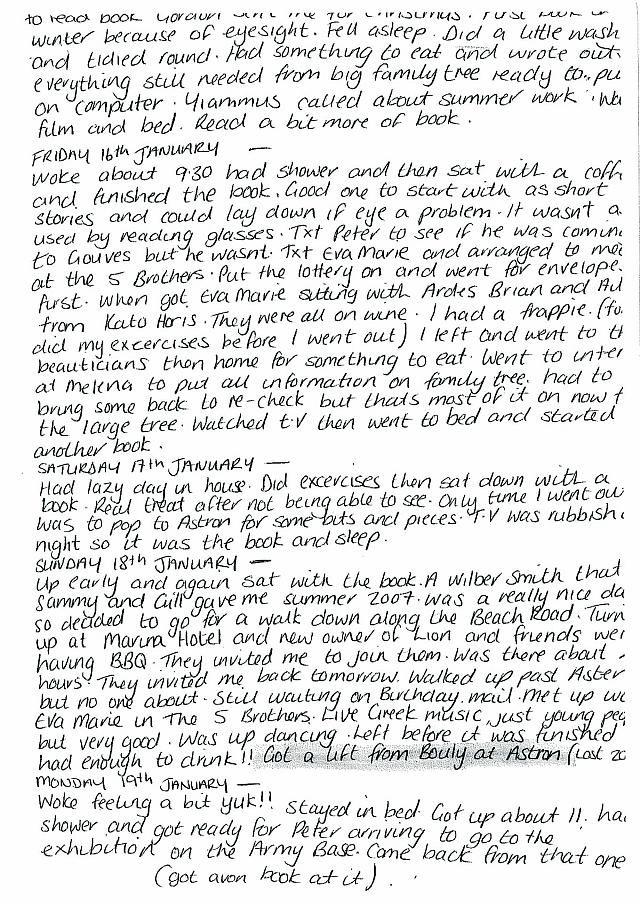 to read book Gordon sent me for Christmas. First book
winter because of eyesight. Fell asleep. Did a little wash
and tidied round. Had something to eat and wrote out
everything still needed from big family tree ready to pu
on computer. Yiammus called about summer work. Wa
film and bed. Read a bit more of book.
FRIDAY 16th JANUARY —
Woke about 9.30 had shower and then sat with a coff
and finished the book. Good one to start with as short
stories and could lay down if eye a problem. It wasn't a
used by reading glasses. Txt Peter to see if he was comin
to Gouves but he wasnt. Txt Eva Marie and arranged to me
at the 5 Brothers. Put the lottery on and went for envelope.
first. When got Eva Marie sitting with Brian and
from Kato Horis. They were all on wine. I had a frappie. (fo
did my excercises before I went out) I left and went to th
beauticians then home for something to eat. Went to inter
at Melena to put all information on family tree. had to
bring some back to re-check but thats most of it on now f
the large tree. Watched t.v then went to bed and started
another book.
SATURDAY 17th JANUARY —
Had lazy day in house. Did excercises then sat down with a
book. Real treat after not being able to see. Only time I went ou
was to pop to Astron for some bits and pieces. T.V was rubbish
night so it was the book and sleep.
SUNDAY 18th JANUARY —
Up early and again sat with the book. A Wilber Smith that
Sammy and Gill gave me summer 2007. Was a really nice da
so decided to go for a walk down along the Beach Road. Turn
up at Marina Hotel and new owner of Lion and friends wer
having BBQ. They invited me to join them. Was there about
hours. They invited me back tomorrow. Walked up past Aster
but no one about. Still waiting on Birthday mail. Met up w
Eva Marie in The 5 Brothers. Live Greek music, just young peo
but very good. Was up dancing. Left before it was finished
had enough to drink!! Got a lift from Bouly at Astron (Last 20
MONDAY 19th JANUARY —
Woke feeling a bit yuk!! Stayed in bed. Got up about 11. ha
shower and got ready for Peter arriving to go to the
exhibition on the Army Base. Came back from that one
(got avon book at it).